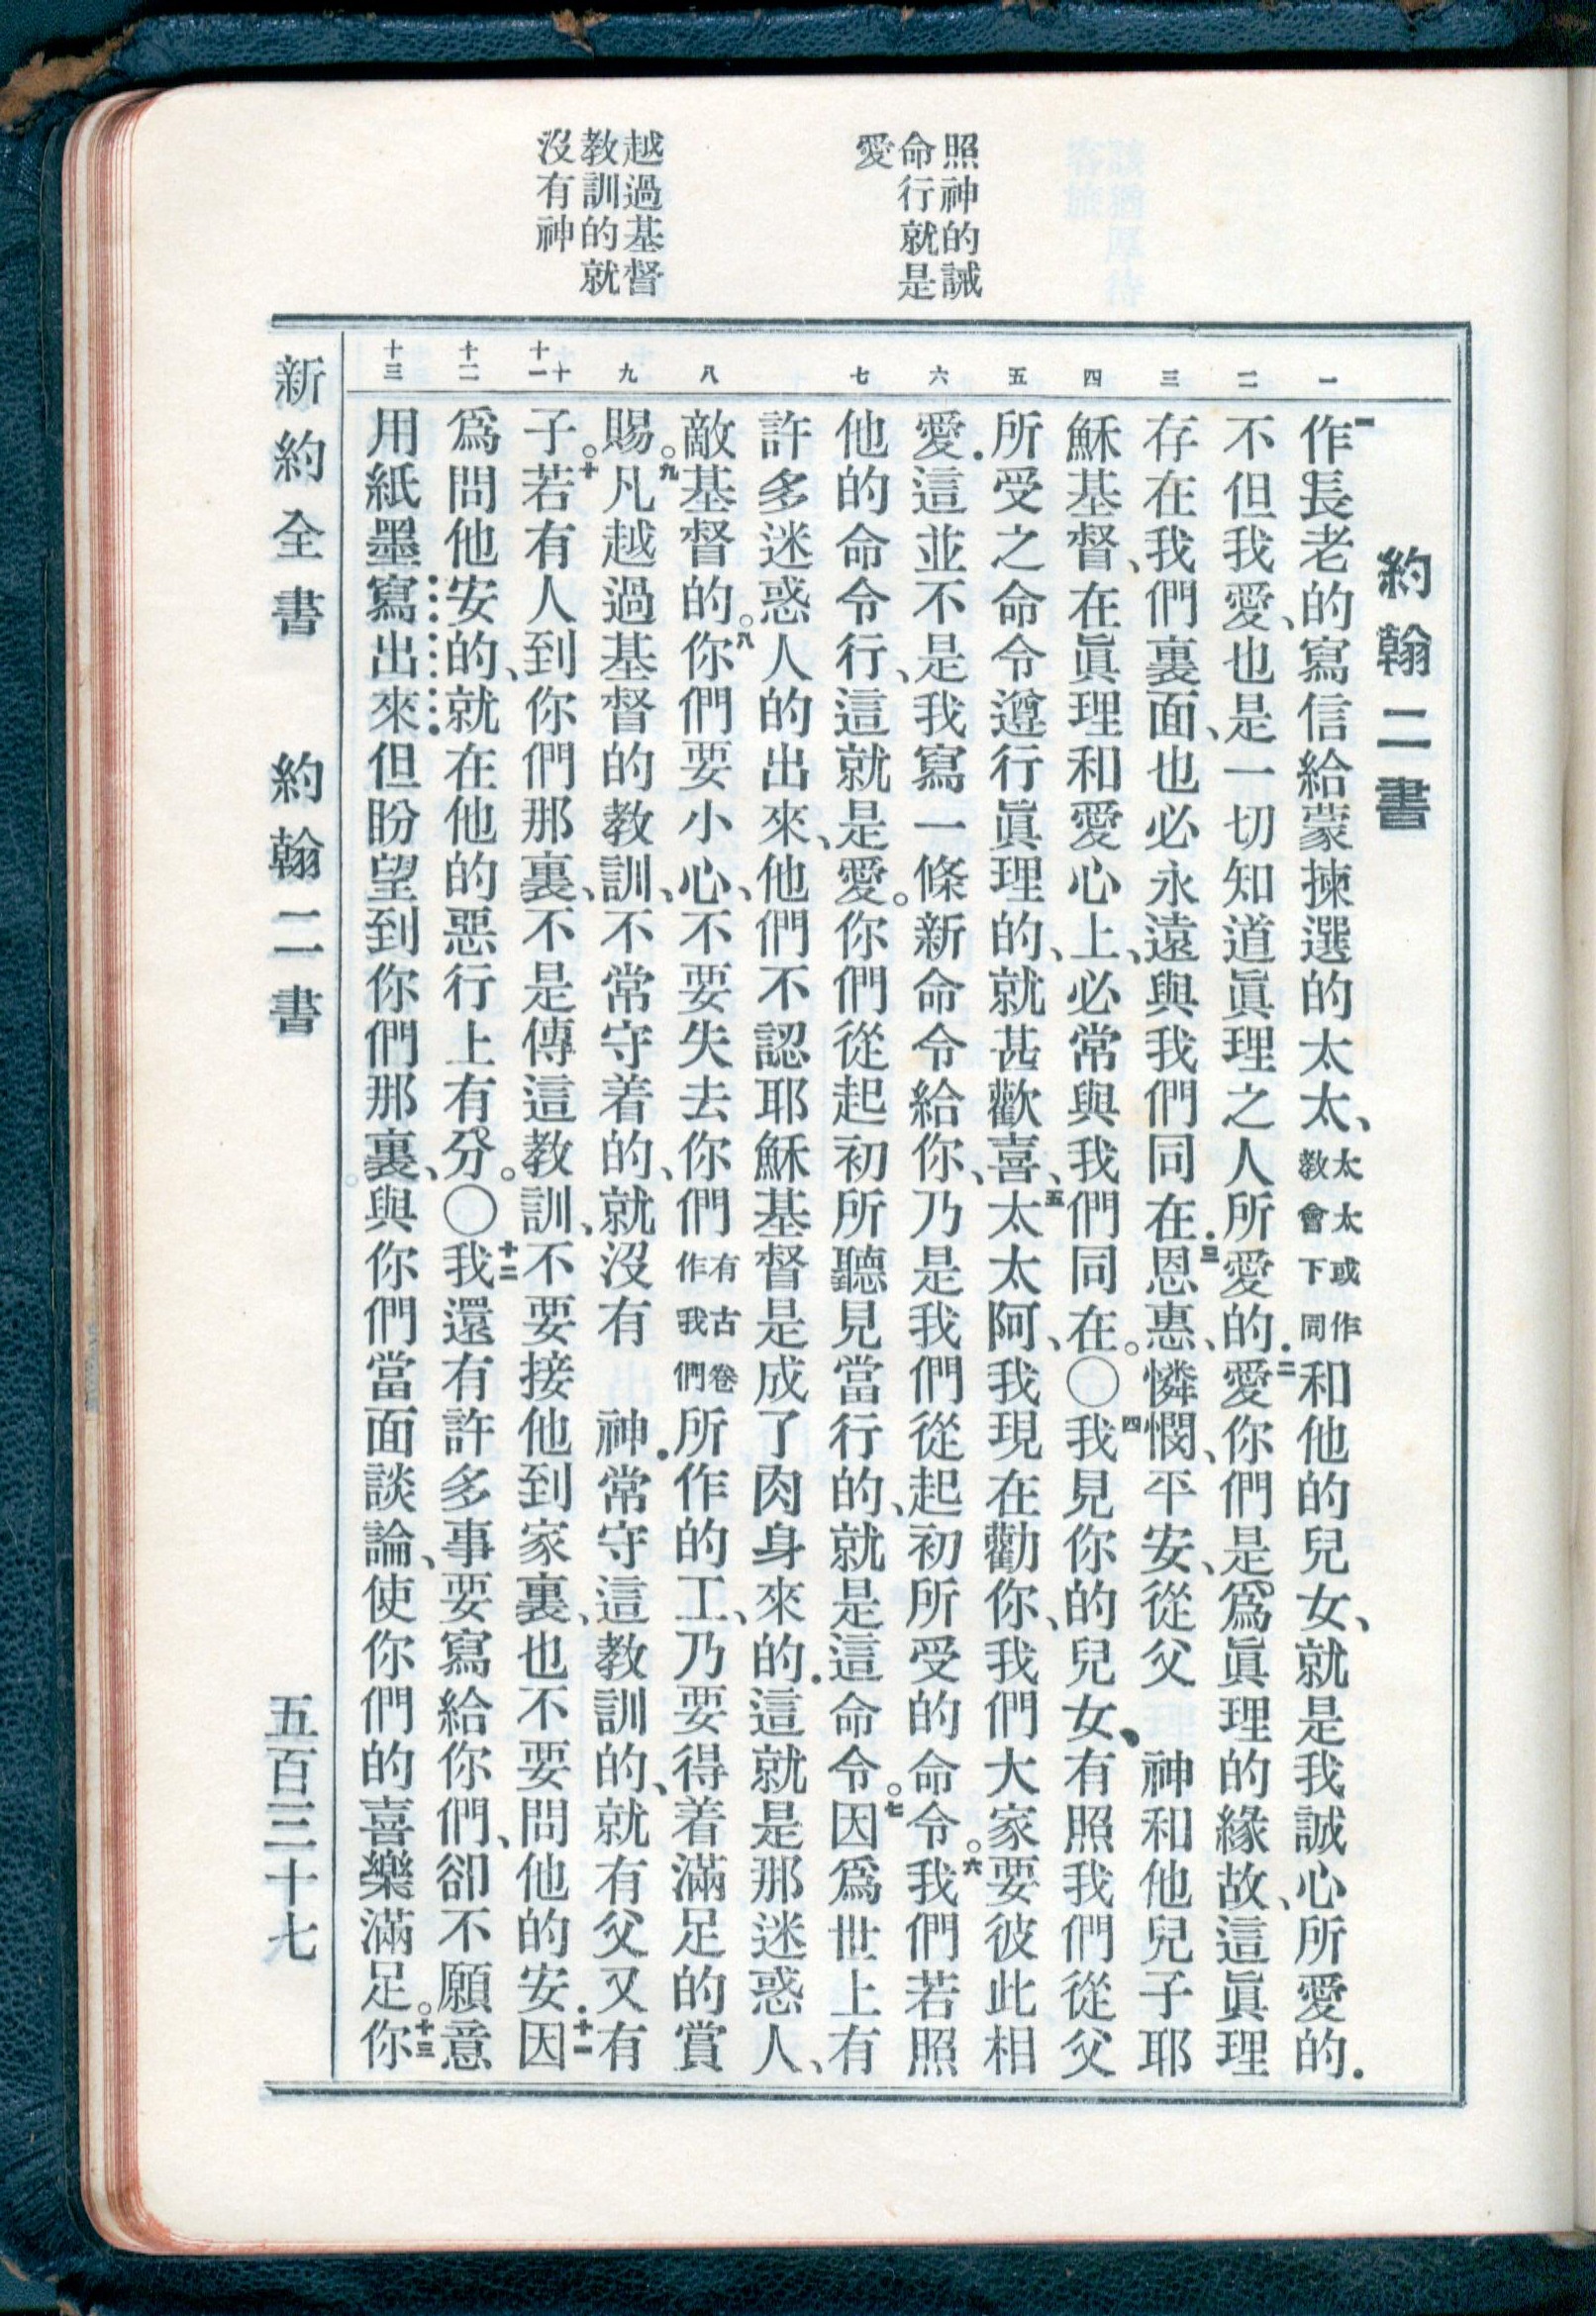 照神的誡
命行就是
愛
越過基督
教訓的就
沒有神
約翰二書
一 二 三 四 五 六 七 八 九 十 十一 十二 十三
一作長老的寫信給蒙揀選的太太、太太或作教會下同和他的兒女、就是我誠心所愛的．
不但我愛、也是一切知道眞理之人所愛的．二愛你們是爲眞理的緣故、這眞理
存在我們裏面、也必永遠與我們同在．三恩惠、憐憫、平安、從父　神和他兒子耶
穌基督、在眞理和愛心上、必常與我們同在。○四我見你的兒女、有照我們從父
所受之命令遵行眞理的、就甚歡喜、五太太阿、我現在勸你、我們大家要彼此相
愛．這並不是我寫一條新命令給你、乃是我們從起初所受的命令。六我們若照
他的命令行、這就是愛。你們從起初所聽見當行的、就是這命令。七因爲世上有
許多迷惑人的出來、他們不認耶穌基督是成了肉身來的．這就是那迷惑人、
敵基督的。八你們要小心、不要失去你們有古卷作我們所作的工、乃要得着滿足的賞
賜。九凡越過基督的教訓、不常守着的、就沒有　神．常守這教訓的、就有父又有
子。十若有人到你們那裏、不是傳這教訓、不要接他到家裏、也不要問他的安．十一因
爲問他安的、就在他的惡行上有分。○十二我還有許多事要寫給你們、卻不願意
用紙墨寫出來但盼望到你們那裏、與你們當面談論、使你們的喜樂滿足。十三你
新約全書　約翰二書　五百三十七